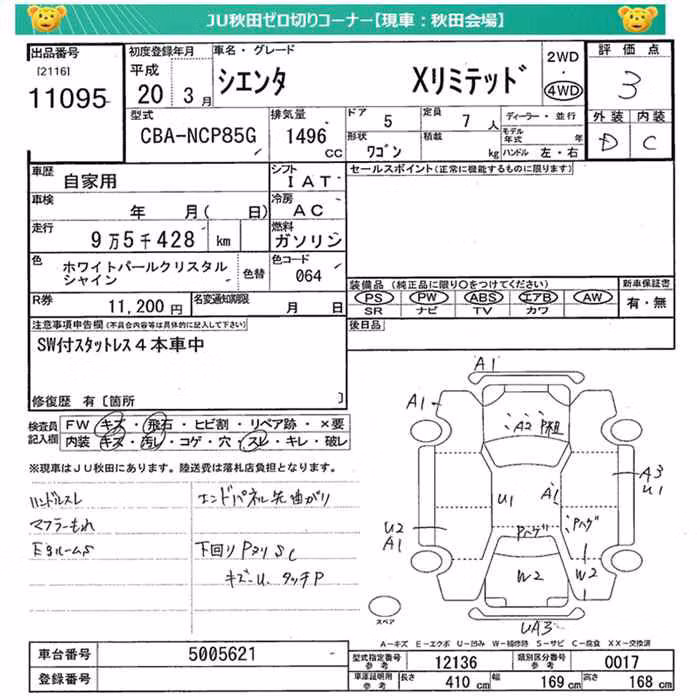 JU秋田ゼロ切りコーナー【現車：秋田会場】
出品番号
[2116]
11095
初度登録年月
平成
20 3月
車名・グレード
シエンタ Xリミテッド
2WD
・
4WD
評価点
3
外装 内装
D C
型式
CBA-NCP85G
排気量
1496 CC
ドア 5
定員 7 人
形状 ワゴン
積載 kg
ディーラー・並行
モデル年式 年
ハンドル 左・右
車歴 自家用
シフト IAT
車検 年 月( 日)
冷房 AC
走行 9万5千428 km
燃料 ガソリン
色 ホワイトパールクリスタルシャイン
色替
色コード 064
R券 11,200円
名変通知期限 月 日
セールスポイント(正常に機能するものに限ります)
装備品 (純正品に限り○をつけてください)
PS PW ABS エアB AW
SR ナビ TV カワ
新車保証書
有・無
後日品
注意事項申告欄(不具合内容等は具体的に記入して下さい)
SW付スタットレス4本車中
修復歴 有[箇所 ]
検査員記入欄
FW キズ・飛石・ヒビ割・リペア跡・×要
内装 キズ・汚レ・コゲ・穴・スレ・キレ・破レ
※現車はJU秋田にあります。陸送費は落札店負担となります。
ハンドルスレ
マフラーもれ
エンドパネル先曲がり
下回りPスリSC
キズーU、タッチP
A1
A1
A2 P粗
A3
U1
U1
A1
Pハゲ
Pハゲ
U2
A1
W2
W2
UA3
スペア
A-キズ E-エクボ U-凹み W-補修跡 S-サビ C-腐食 XX-交換済
車台番号 5005621
登録番号
型式指定番号 参考 12136
類別区分番号 参考 0017
車庫証明用 参考 長さ 410 cm 幅 169 cm 高さ 168 cm